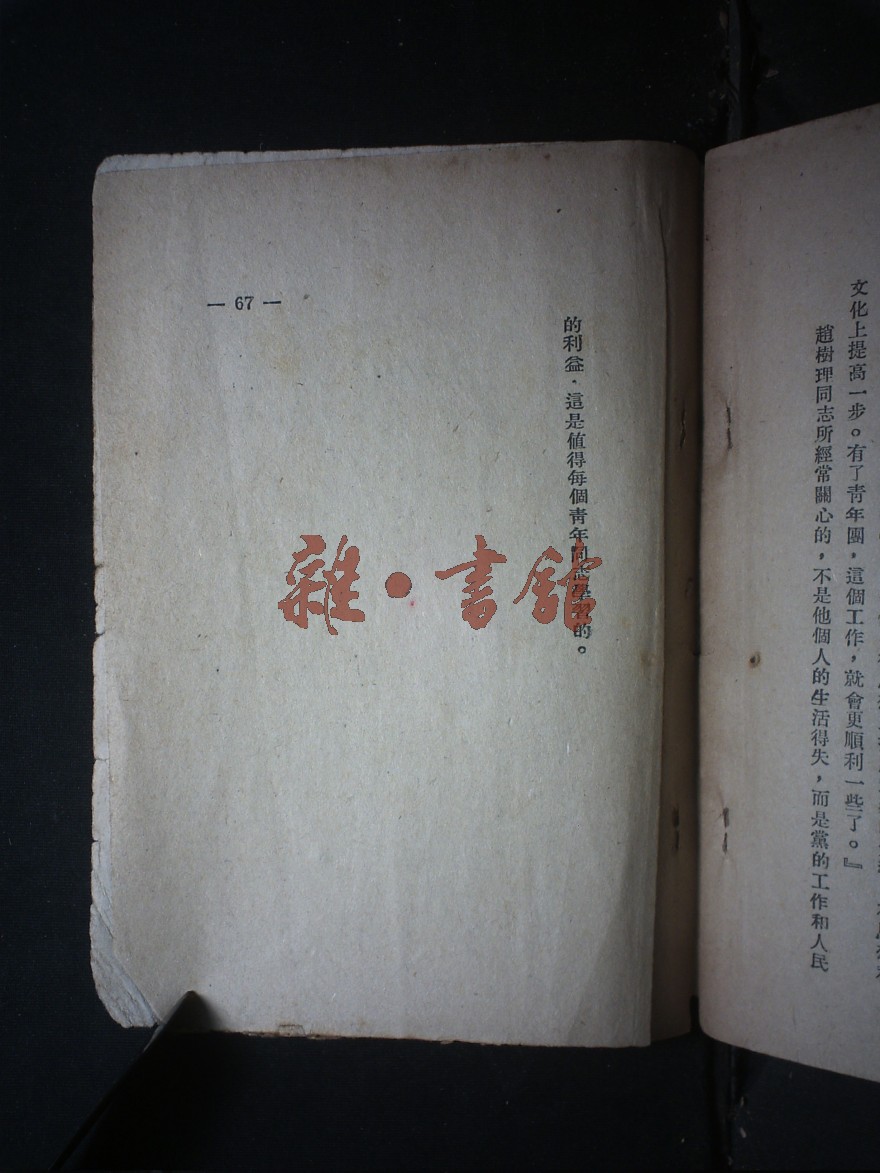 文化上提高一步。有了青年團，這個工作，就會更順利一些了。』
趙樹理同志所經常關心的，不是他個人的生活得失，而是黨的工作和人民
的利益．這是值得每個青年同志學習的。
— 67 —
雜・書館